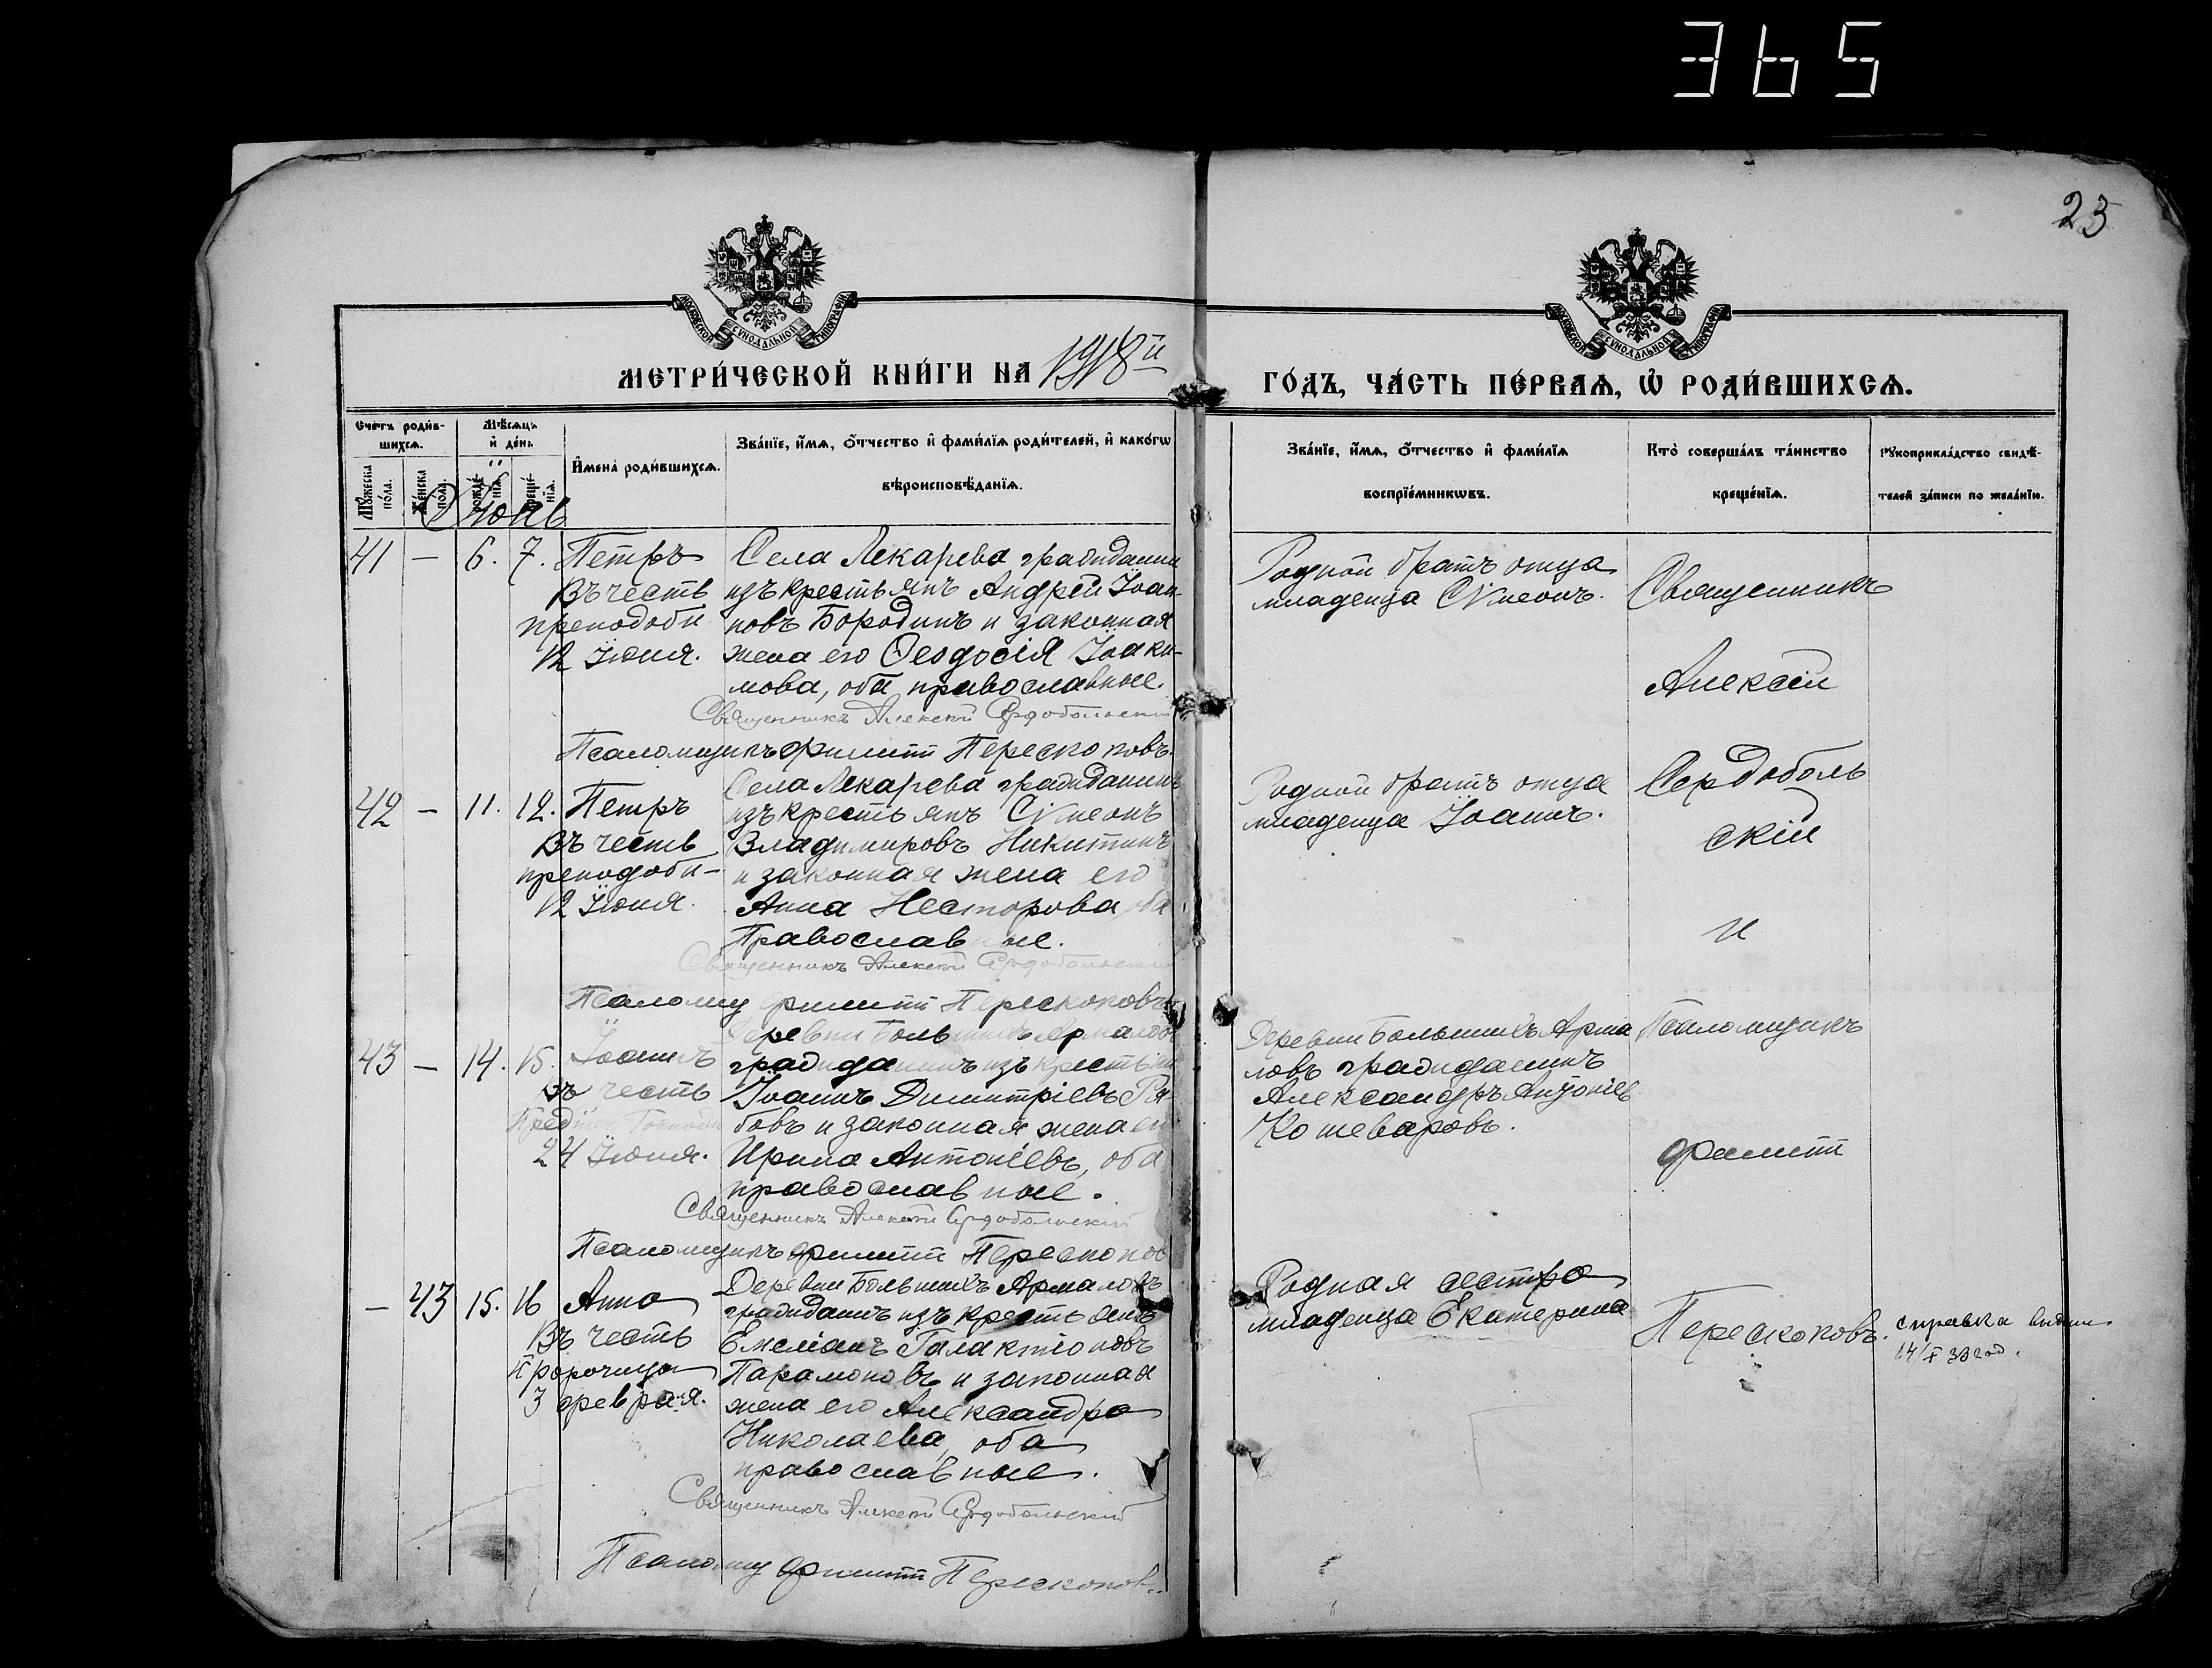 365
23
МОСКОВСКОЙ СѴНОДАЛЬНОЙ ТИПОГРАФІИ
МОСКОВСКОЙ СѴНОДАЛЬНОЙ ТИПОГРАФІИ
МЕТРИ́ЧЕСКОЙ КНИ́ГИ НА 1918й
ГО́ДЪ, ЧА́СТЬ ПЕ́РВАѦ, Ѡ҆ РОДИ́ВШИХСѦ.
Сче́тъ роди́в-
шихсѧ.
Мꙋ́жеска
по́ла.
Же́нска
по́ла.
Мѣ́сѧцъ
и҆ де́нь
рожде́-
нїѧ.
креще́-
нїѧ.
И҆мена̀ роди́вшихсѧ.
Зва́нїе, и҆́мѧ, ѻ҆́тчество и҆ фами́лїѧ роди́телей, и҆ како́гѡ
вѣроисповѣ́данїѧ.
Зва́нїе, и҆́мѧ, ѻ҆́тчество и҆ фами́лїѧ
воспрїе́мникѡвъ.
Кто̀ соверша́лъ та́инство
креще́нїѧ.
Рꙋкоприкла́дство свидѣ́-
телей за́писи по жела́нїю.
Іюнь
41 — 6. 7. Петръ
Въ честь
преподобн
12 Іюня.
Села Лекарева гражданин
изъ крестьянъ Андрей Іоан-
новъ Бородинъ и законная
жена его Ѳеодосія Іоаки-
мова, оба православные.
Священникъ Алексій Сердобольскій
Псаломщикъ Филиппъ Перескоковъ.
Родной братъ отца
младенца Сѵмеонъ.
Священникъ
Алексій
Сердоболь
скій
и
Псаломщикъ
Филиппъ
Перескоковъ.
42 — 11. 12. Петръ
Въ честь
преподобн-
12 Іюня.
Села Лекарева гражданинъ
изъ крестьянъ Сѵмеонъ
Владимировъ Никитинъ
и законная жена его
Анна Несторова, оба
Православные.
Священникъ Алексій Сердобольскій
Псаломщ Филиппъ Перескоковъ
Родной братъ отца
младенца Іоаннъ.
43 — 14. 15. Іоаннъ
Въ честь
Предтеч Господн
24 Іюня.
Деревни Большихъ Армалов
гражданинъ изъ крестьян
Іоаннъ Димитріевъ Ря-
бовъ и законная жена его
Ирина Антоніевъ, оба
православные.
Священникъ Алексій Сердобольскій
Псаломщикъ Филиппъ Перескоков
Деревни Большихъ Арма
ловъ гражданинъ
Александръ Антоніев
Кошеваровъ.
— 43 15. 16 Анна
Въ честь
Пророчицы
3 февраля.
Деревни Большихъ Армаловъ
гражданинъ изъ крестьянъ
Емеліанъ Галактіоновъ
Парамоновъ и законная
жена его Александра
Николаева, оба
православные.
Священникъ Алексій Сердобольскій
Псаломщ Филиппъ Перескоков
Родная сестра
младенца Екатерина
справка выдан
14/X 33 год.